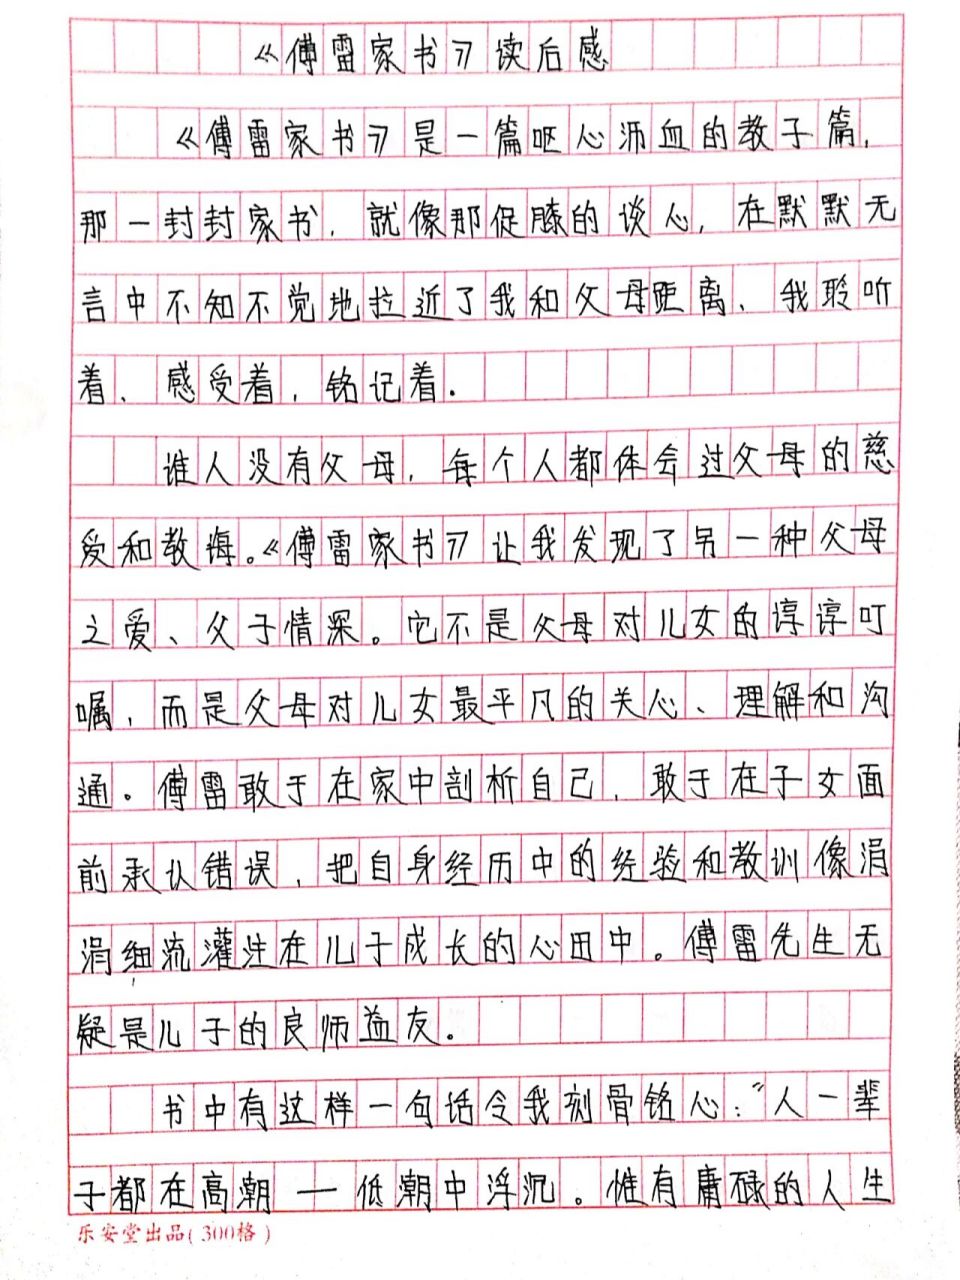 《傅雷家书》读后感
《傅雷家书》是一篇呕心沥血的教子篇，
那一封封家书，就像那促膝的谈心，在默默无
言中不知不觉地拉近了我和父母距离、我聆听
着、感受着，铭记着。
谁人没有父母，每个人都体会过父母的慈
爱和教诲。《傅雷家书》让我发现了另一种父母
之爱、父子情深。它不是父母对儿女的谆谆叮
嘱，而是父母对儿女最平凡的关心、理解和沟
通。傅雷敢于在家中剖析自己，敢于在子女面
前承认错误，把自身经历中的经验和教训像涓
涓细流灌注在儿子成长的心田中。傅雷先生无
疑是儿子的良师益友。
书中有这样一句话令我刻骨铭心：“人一辈
子都在高潮一低潮中浮沉。惟有庸碌的人生
乐安堂出品(300格)